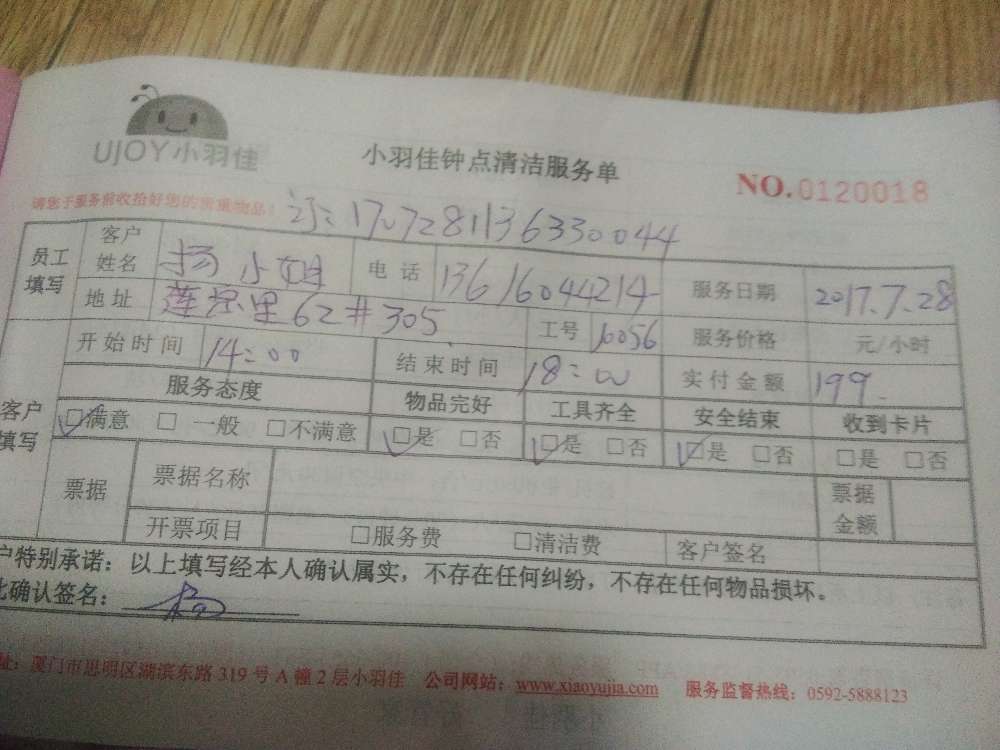 UJOY小羽佳
小羽佳钟点清洁服务单
NO.0120018
请您于服务前收拾好您的贵重物品!
1707281136330044
员工填写 客户姓名 杨小姐 电话 13616044214 服务日期 2017.7.28
地址 莲 里62#305 工号 16056 服务价格 元/小时
开始时间 14:00 结束时间 18:00 实付金额 199
客户填写 服务态度 物品完好 工具齐全 安全结束 收到卡片
☑满意 □一般 □不满意 ☑是 □否 ☑是 □否 ☑是 □否 □是 □否
票据 票据名称 票据金额
开票项目 □服务费 □清洁费 客户签名
户特别承诺：以上填写经本人确认属实，不存在任何纠纷，不存在任何物品损坏。
此确认签名： 杨
址：厦门市思明区湖滨东路 319 号 A 幢 2 层小羽佳 公司网站：www.xiaoyujia.com 服务监督热线：0592-5888123